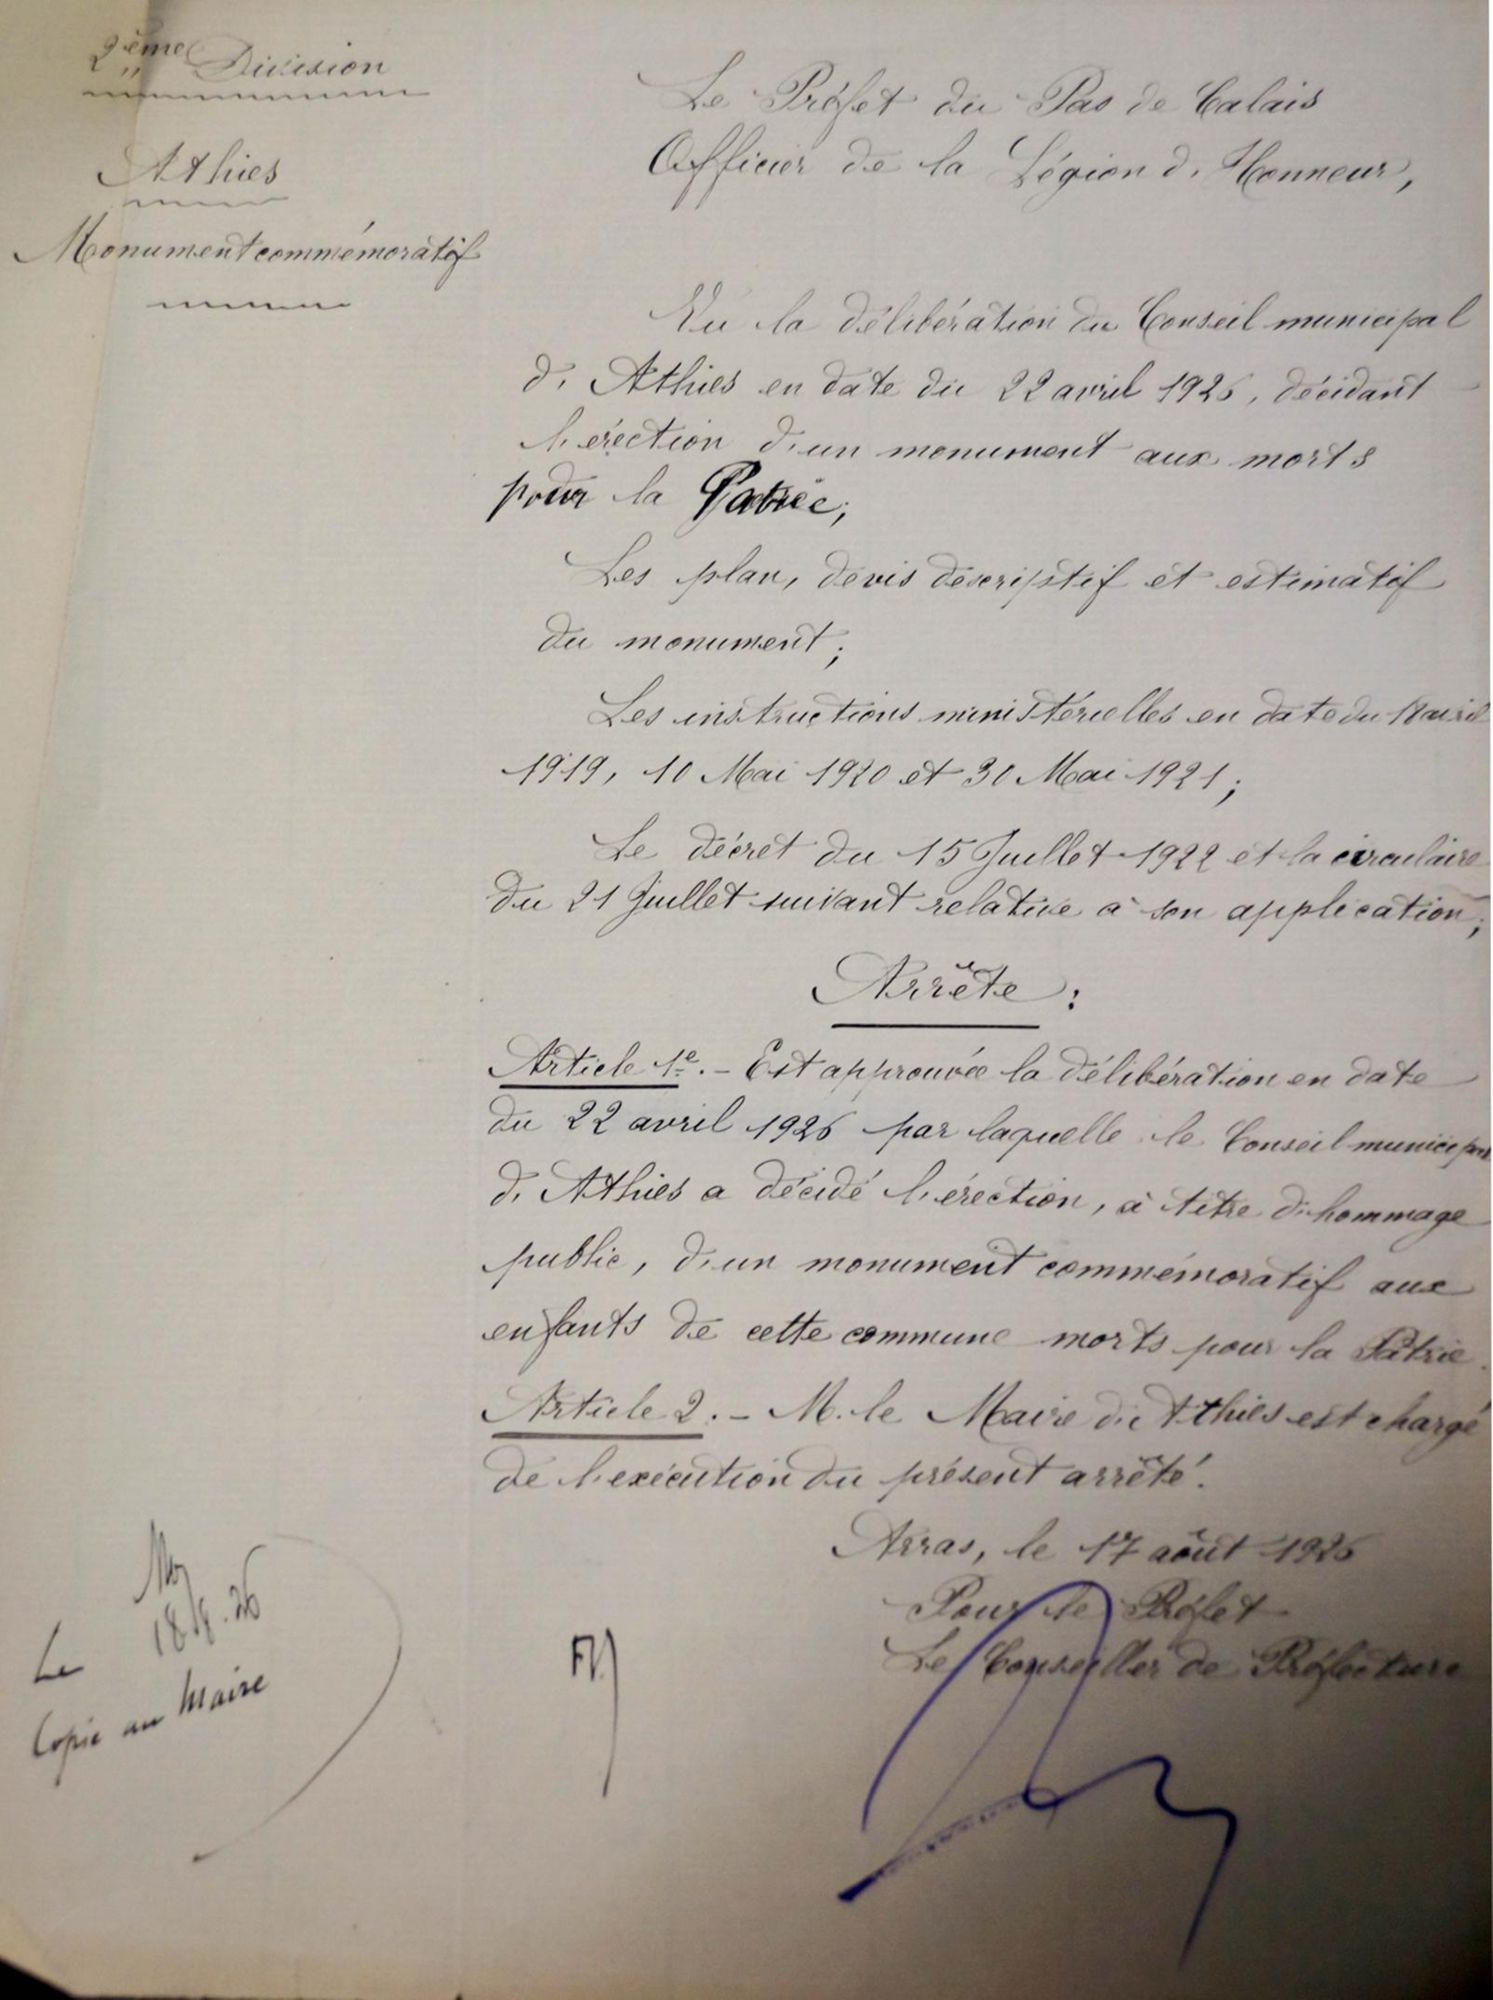 2ème Division
Athies
Monument commémoratif
Le Préfet du Pas de Calais
Officier de la Légion d'Honneur,
Vu la délibération du Conseil municipal
d'Athies en date du 22 avril 1926, décidant
l'érection d'un monument aux morts
pour la Patrie;
Les plan, devis descriptif et estimatif
du monument;
Les instructions ministérielles en date du avril
1919, 10 Mai 1920 et 30 Mai 1921;
Le décret du 15 Juillet 1922 et la circulaire
du 21 Juillet suivant relative à son application;
Arrête:
Article 1e. - Est approuvée la délibération en date
du 22 avril 1926 par laquelle le Conseil municipal
d'Athies a décidé l'érection, à titre d'hommage
public, d'un monument commémoratif aux
enfants de cette commune morts pour la Patrie.
Article 2. - M. le Maire d'Athies est chargé
de l'exécution du présent arrêté.
Arras, le 17 août 1926
Pour le Préfet
Le Conseiller de Préfecture
18/8.26
Le
Copie au Maire